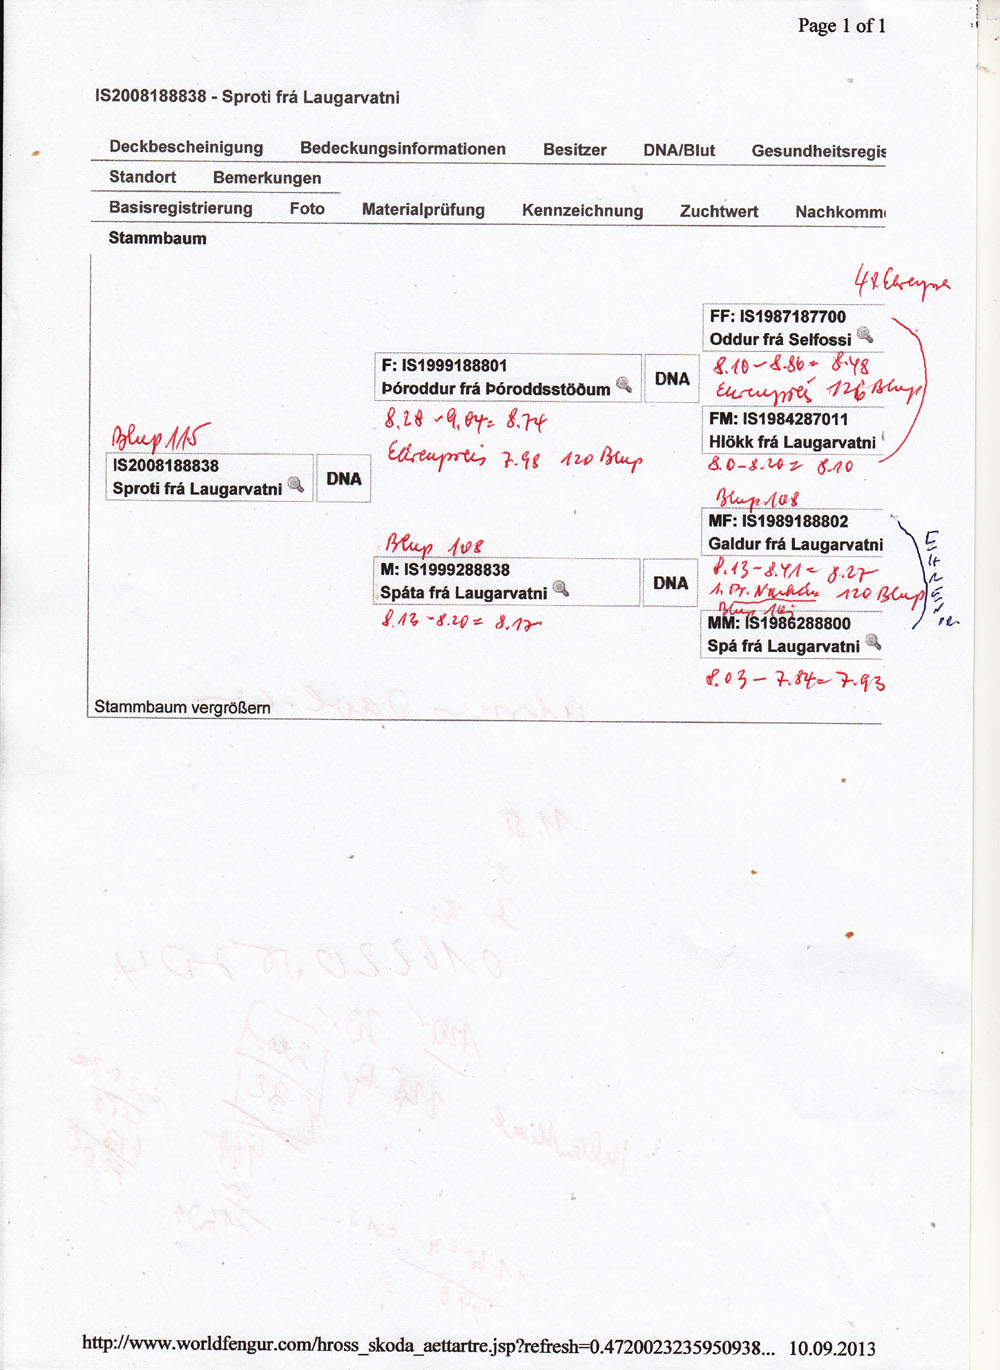 Page 1 of 1
IS2008188838 - Sproti frá Laugarvatni
Deckbescheinigung Bedeckungsinformationen Besitzer DNA/Blut Gesundheitsregis
Standort Bemerkungen
Basisregistrierung Foto Materialprüfung Kennzeichnung Zuchtwert Nachkomm
Stammbaum
4x
FF: IS1987187700
Oddur frá Selfossi
8.10 - 8.86 = 8.48
Ehrenpreis 126 Blup
F: IS1999188801
Þóroddur frá Þóroddsstöðum
DNA
8.28 - 9.04 = 8.74
Ehrenpreis 7.98 120 Blup
FM: IS1984287011
Hlökk frá Laugarvatni
8.0 - 8.20 = 8.10
Blup 115
IS2008188838
Sproti frá Laugarvatni
DNA
Blup 108
MF: IS1989188802
Galdur frá Laugarvatni
8.13 - 8.41 = 8.27
1. Pr. 120 Blup
EHREN
Blup 108
M: IS1999288838
Spáta frá Laugarvatni
DNA
8.13 - 8.20 = 8.17
Blup
MM: IS1986288800
Spá frá Laugarvatni
8.03 - 7.84 = 7.93
Stammbaum vergrößern
http://www.worldfengur.com/hross_skoda_aettartre.jsp?refresh=0.4720023235950938... 10.09.2013